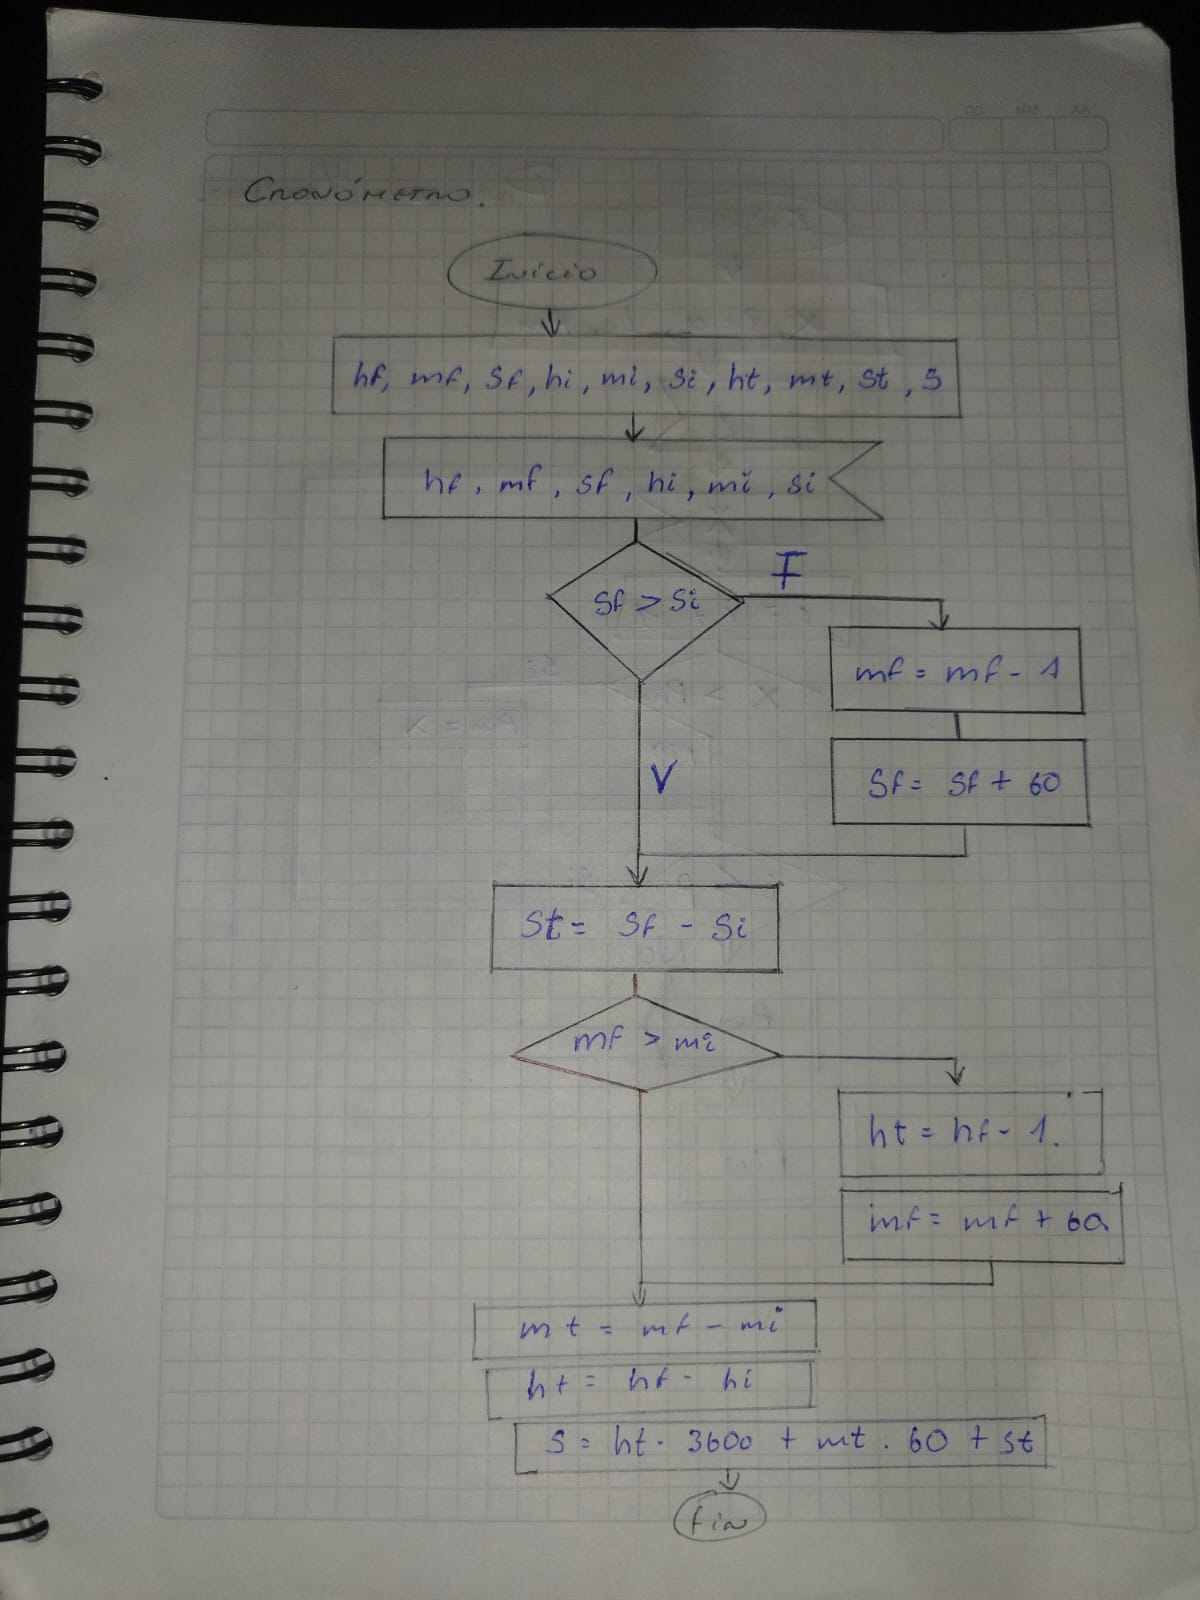 Cronómetro.
Inicio
hf, mf, sf, hi, mi, si, ht, mt, st, s
hf, mf, sf, hi, mi, si
sf > si
F
mf = mf - 1
sf = sf + 60
V
st = sf - si
mf > mi
ht = hf - 1.
mf = mf + 60
mt = mf - mi
ht = hf - hi
s = ht · 3600 + mt · 60 + st
fin